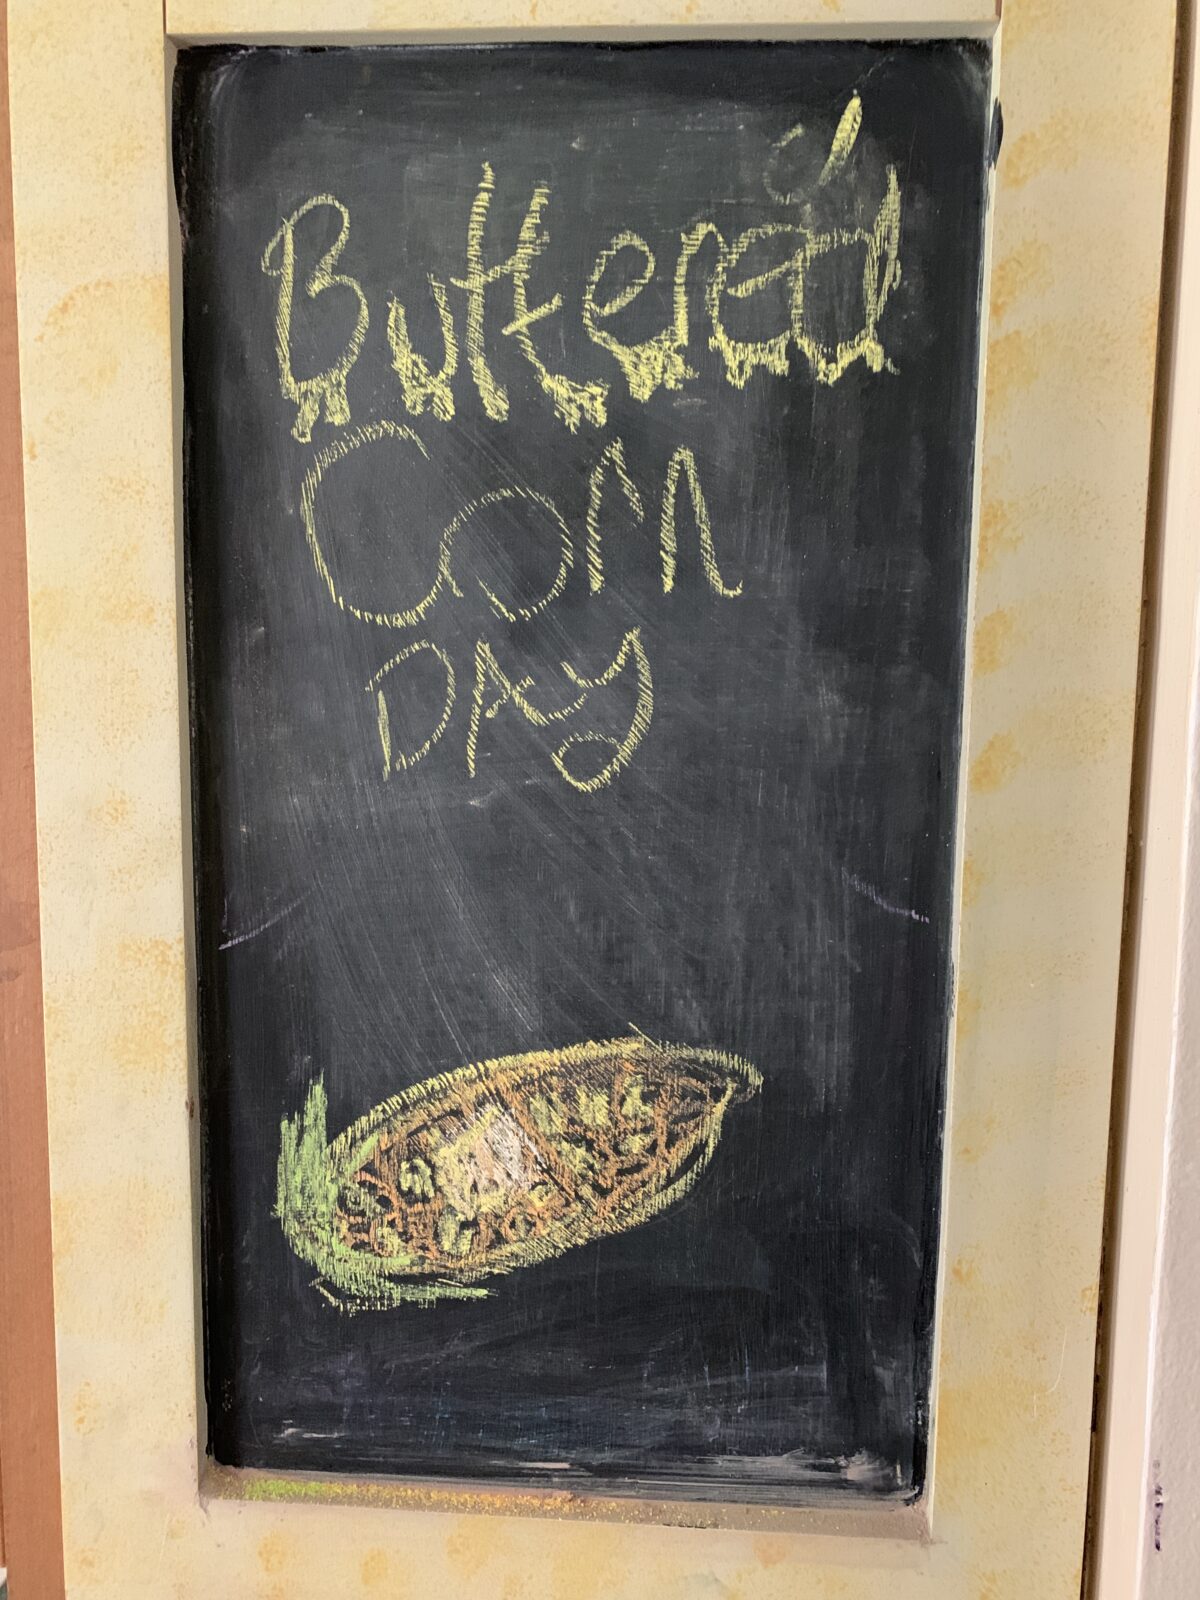 Buttered
Corn
DAy